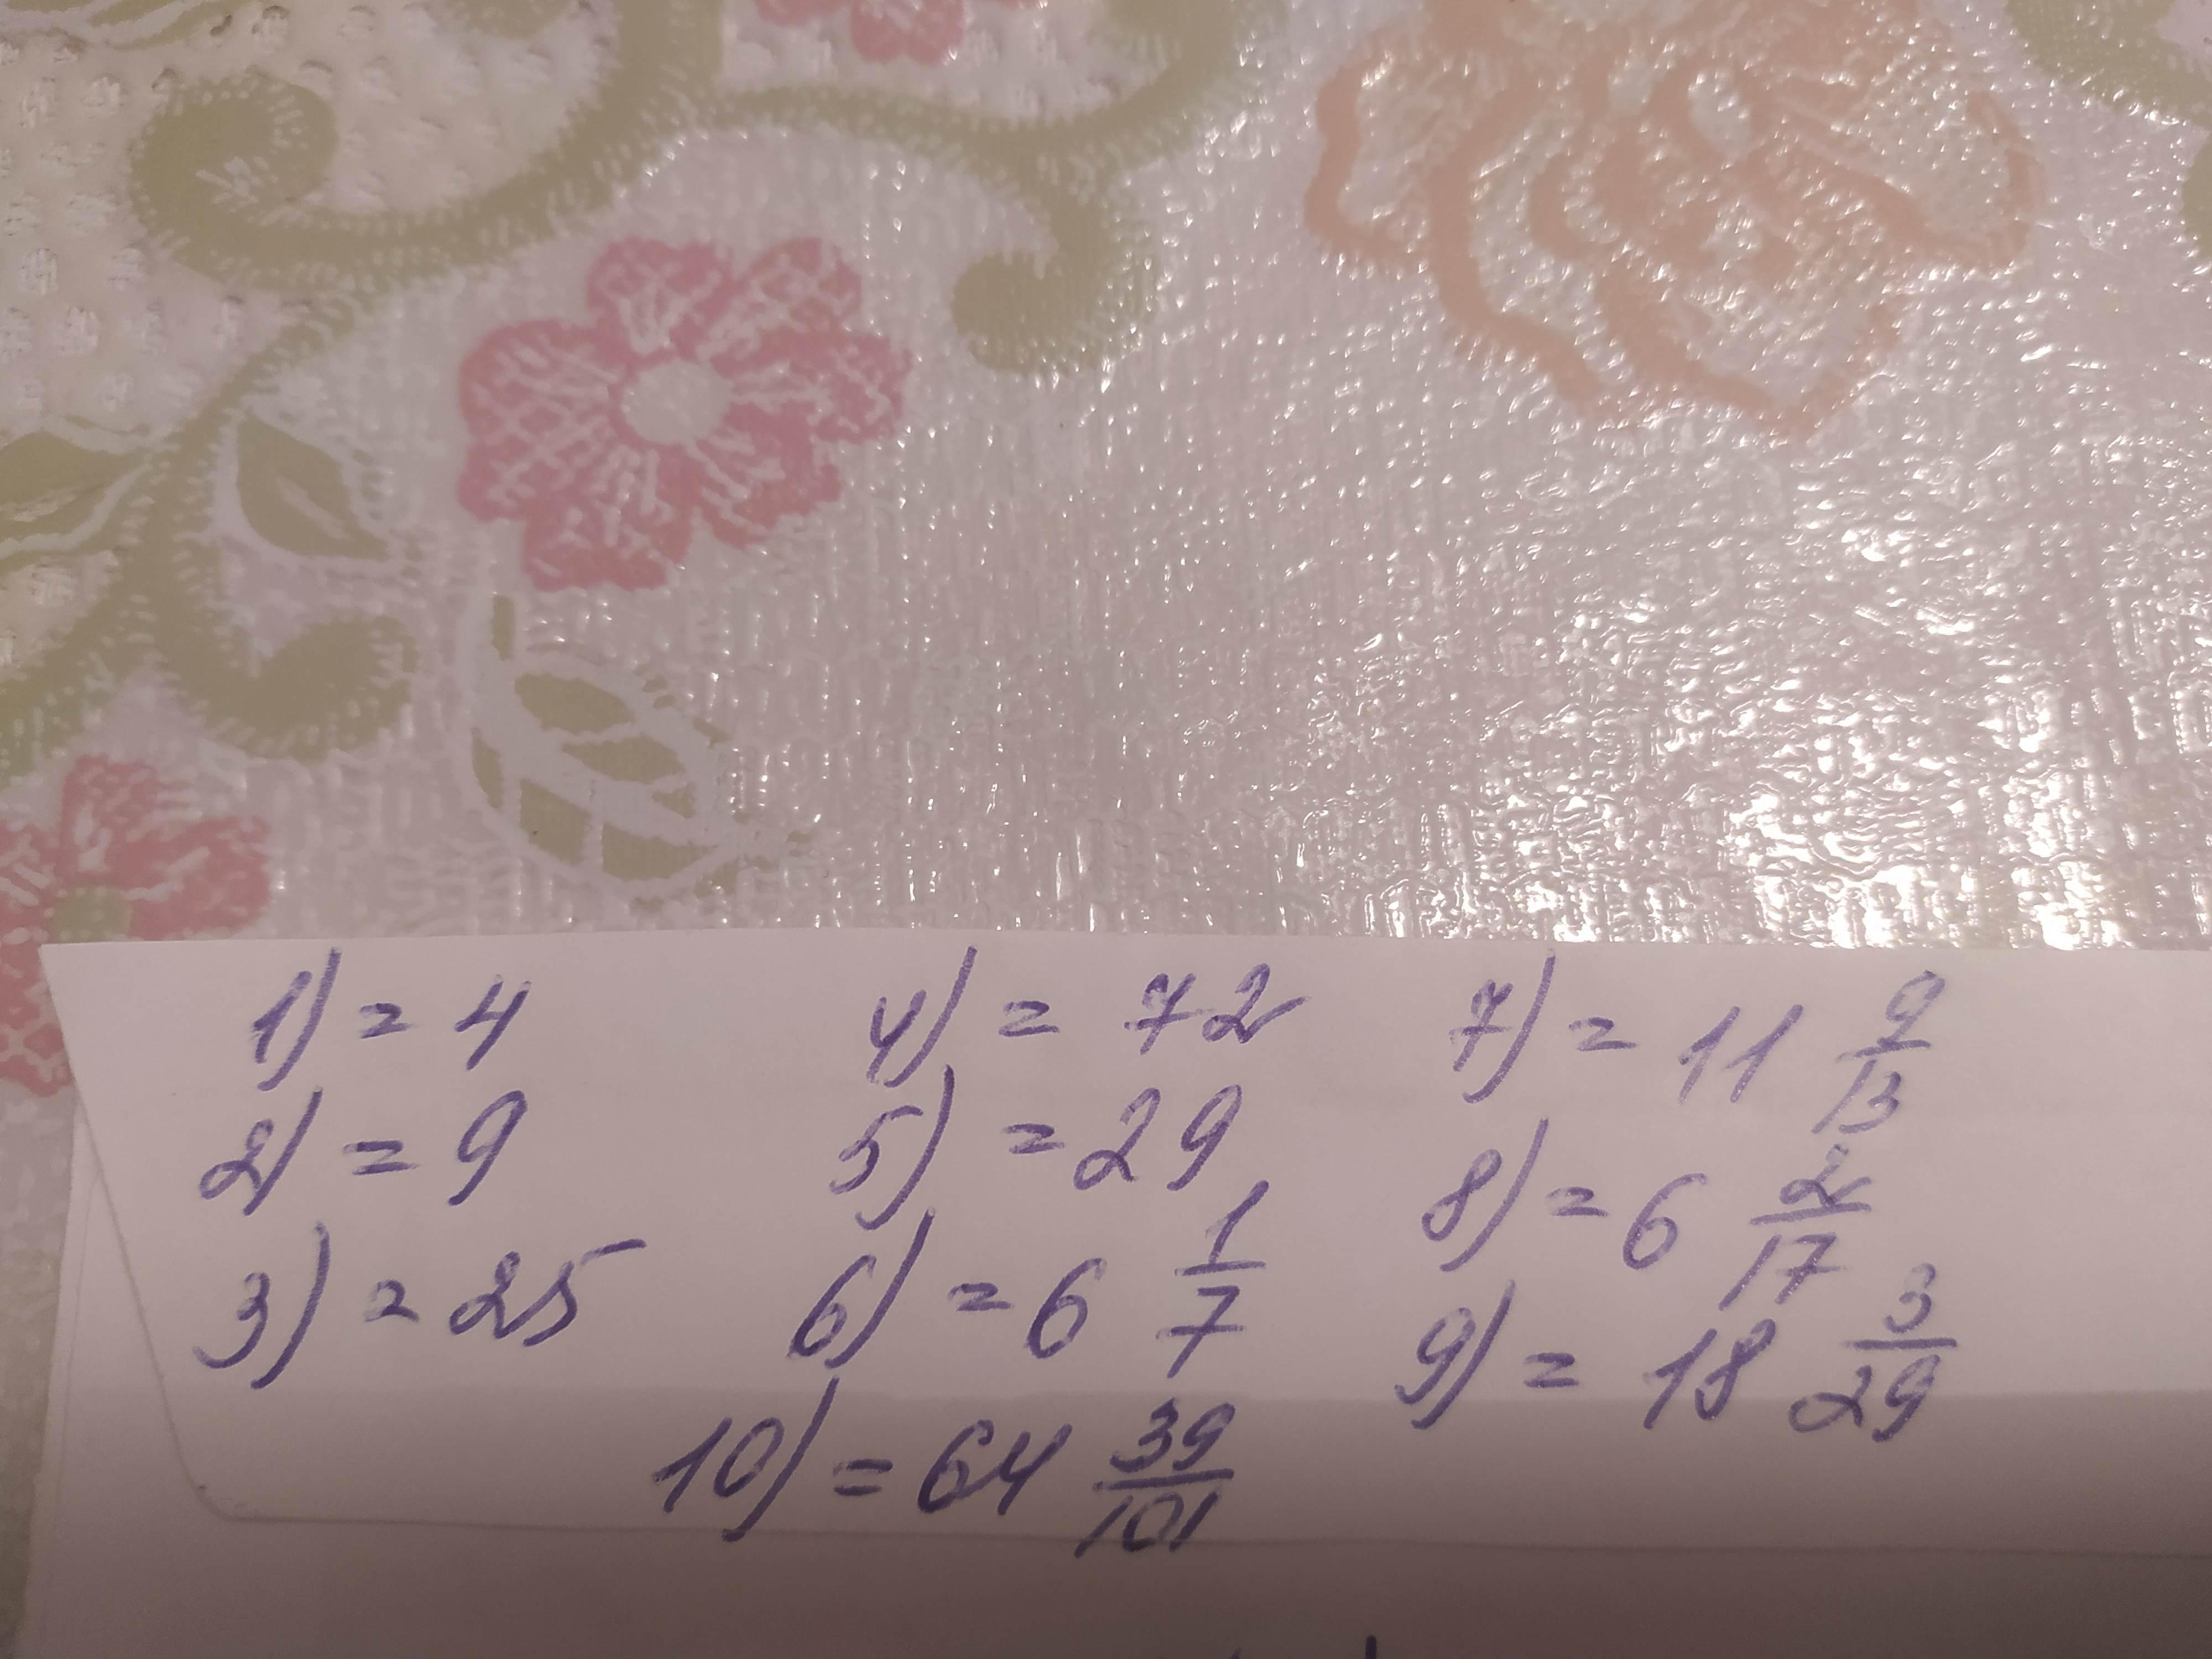 1) = 4
2) = 9
3) = 25
4) = 72
5) = 29
6) = 6 1/7
7) = 11 9/13
8) = 6 2/17
9) = 18 3/29
10) = 64 39/101